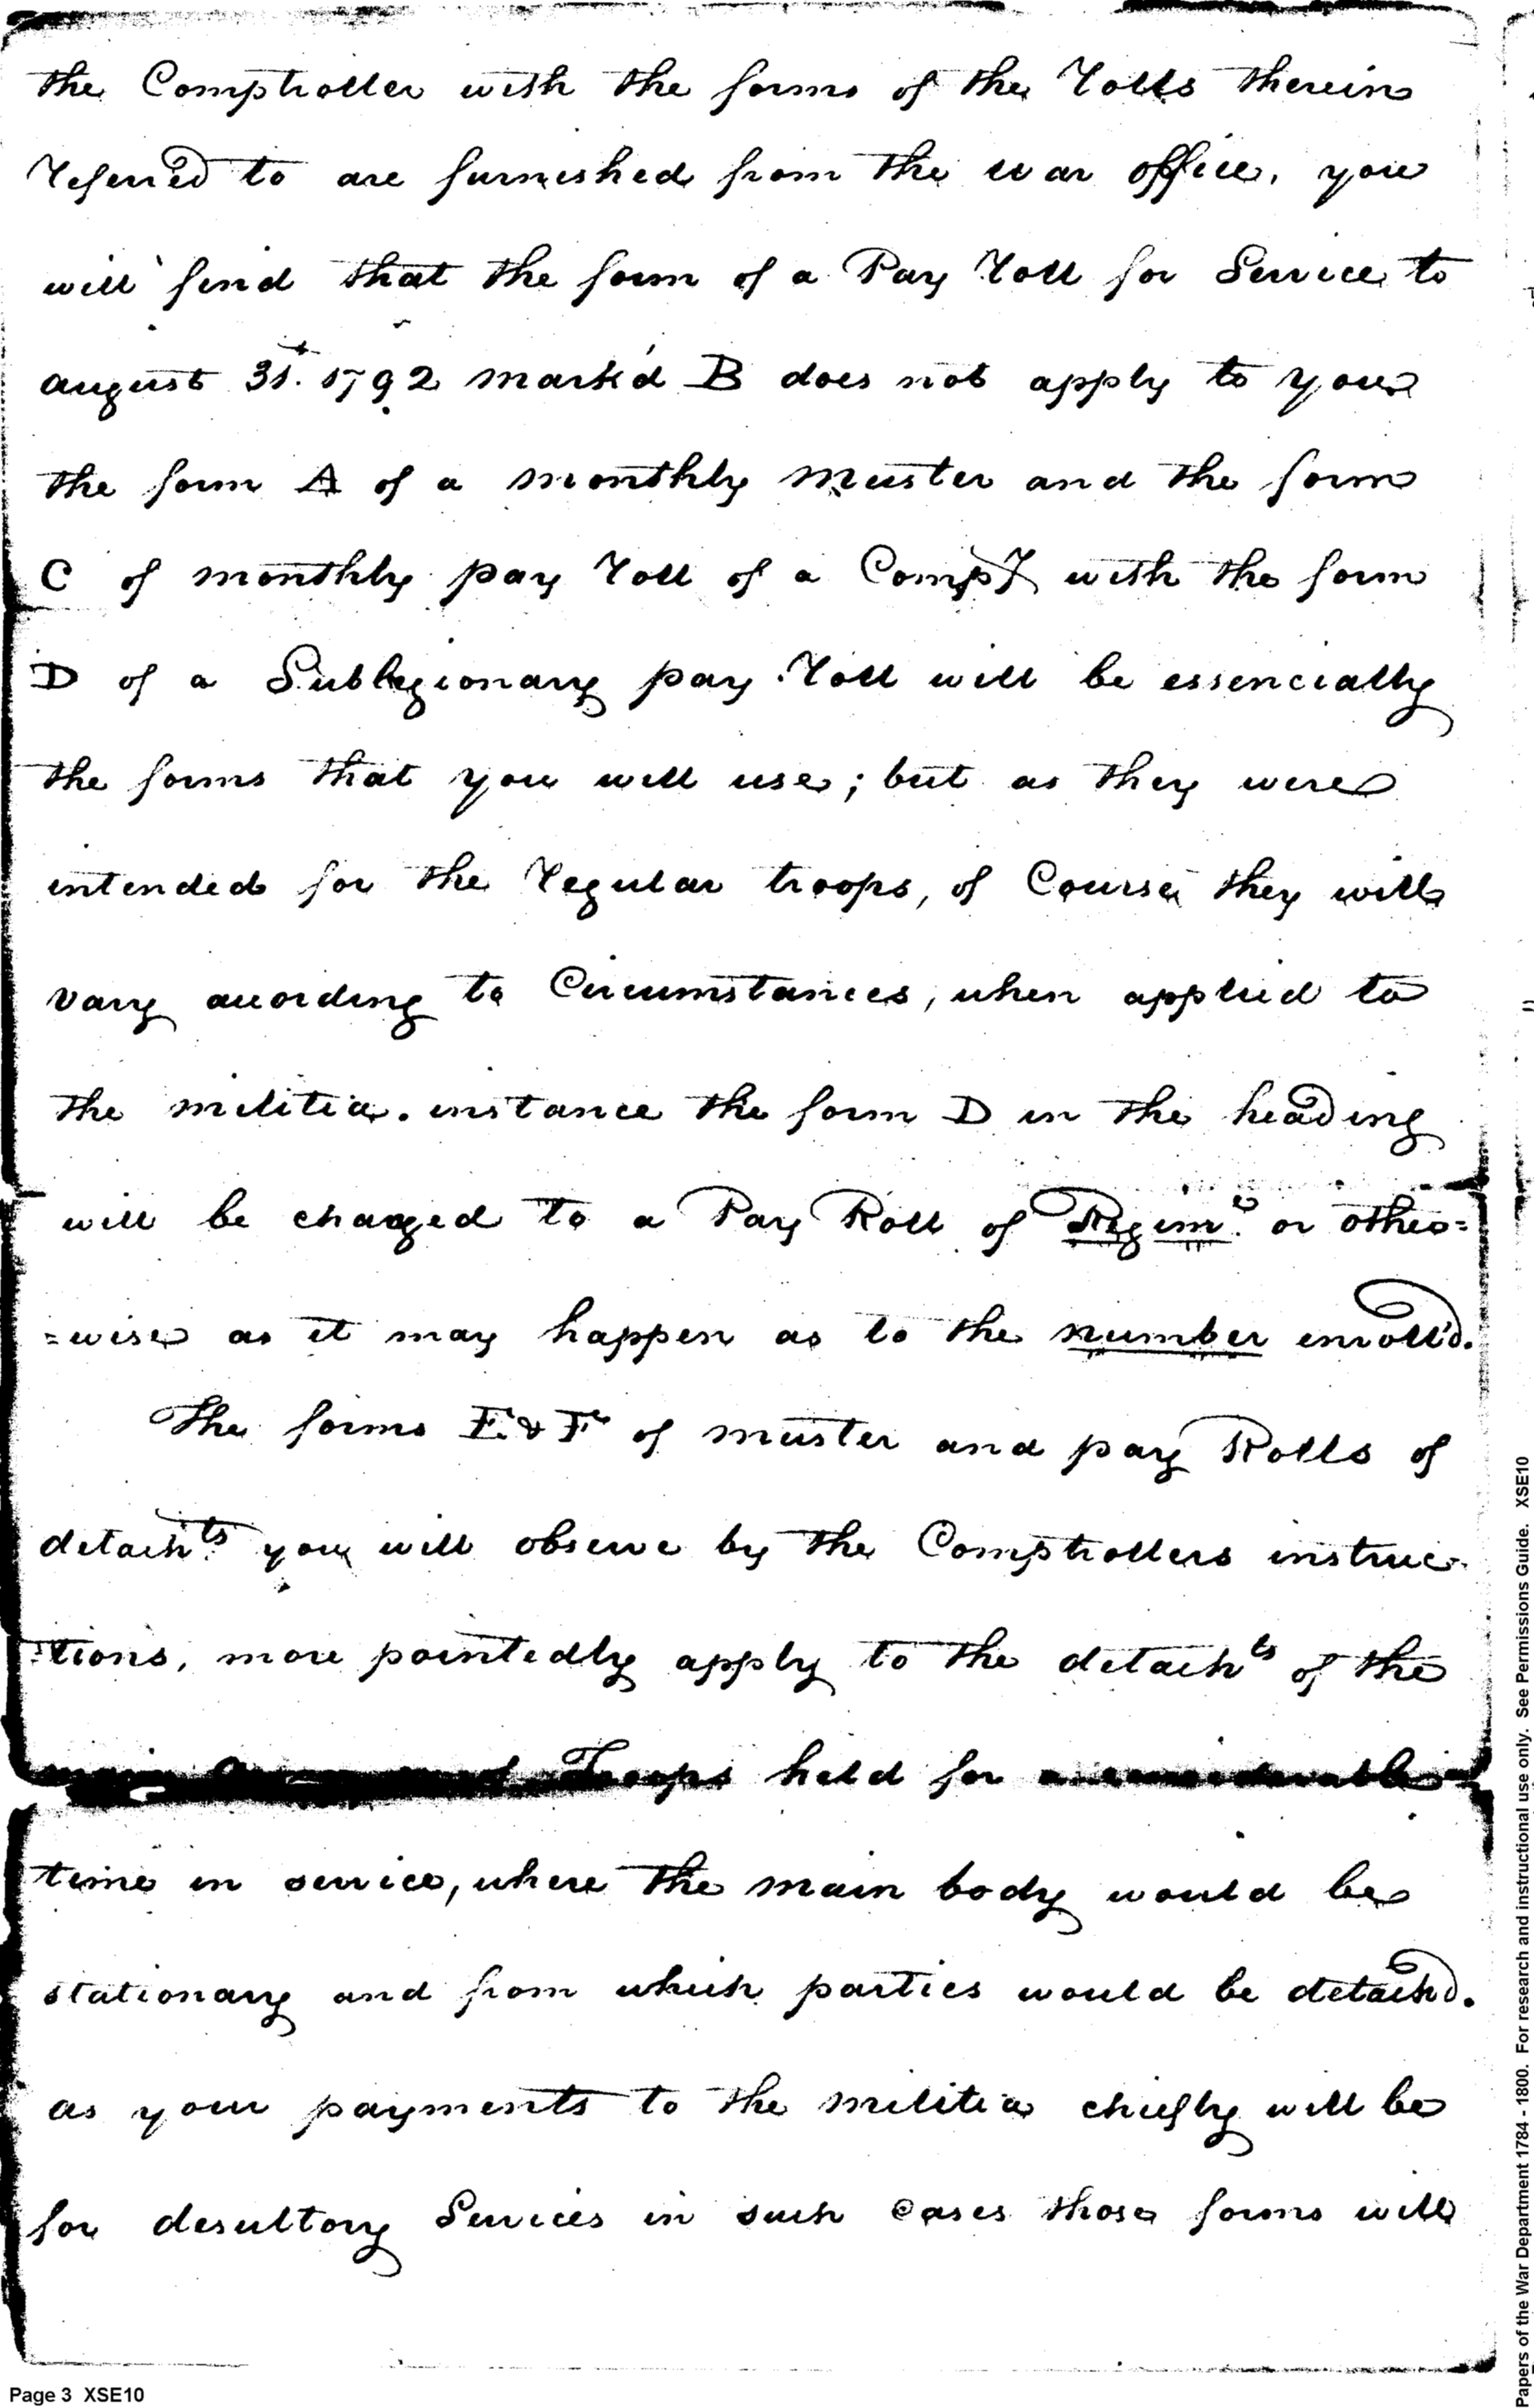 the Comptroller with the forms of the rolls therein
referred to are furnished from the war office, you
will find that the form of a Pay roll for Service to
august 31st. 1792 mark'd B does not apply to you
the form A of a monthly muster and the form
C of monthly pay roll of a Compy with the form
D of a Sublegionary pay roll will be essencially
the forms that you will use; but as they were
intended for the regular troops, of Course they will
vary according to Circumstances, when applied to
the militia. instance the form D in the heading
will be changed to a Pay Roll of Regimt. or other=
=wise as it may happen as to the number enroll'd.
The forms E. & F of muster and pay Rolls of
detachts. you will observe by the Comptrollers instruc-
:tions, more pointedly apply to the detachts of the
Troops held for a considerable
time in service, where the main body would be
stationary and from which parties would be detach'd.
as your payments to the militia chiefly will be
for desultory Services in such cases those forms will
Page 3 XSE10
Papers of the War Department 1784 - 1800. For research and instructional use only. See Permissions Guide. XSE10